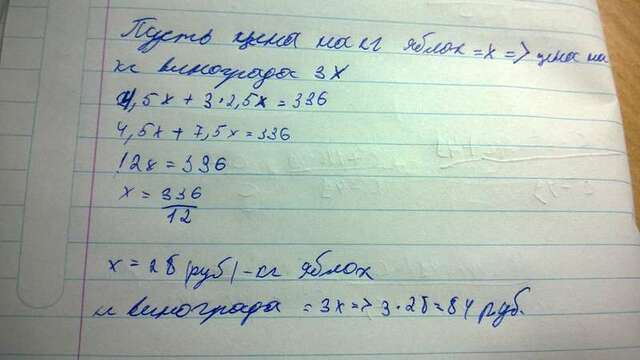 Пусть цена на кг яблок = x => цена на
кг винограда 3x
4,5x + 3·2,5x = 336
4,5x + 7,5x = 336
12x = 336
x = 336
12
x = 28 (руб) - кг яблок
кг винограда = 3x => 3·28 = 84 руб.